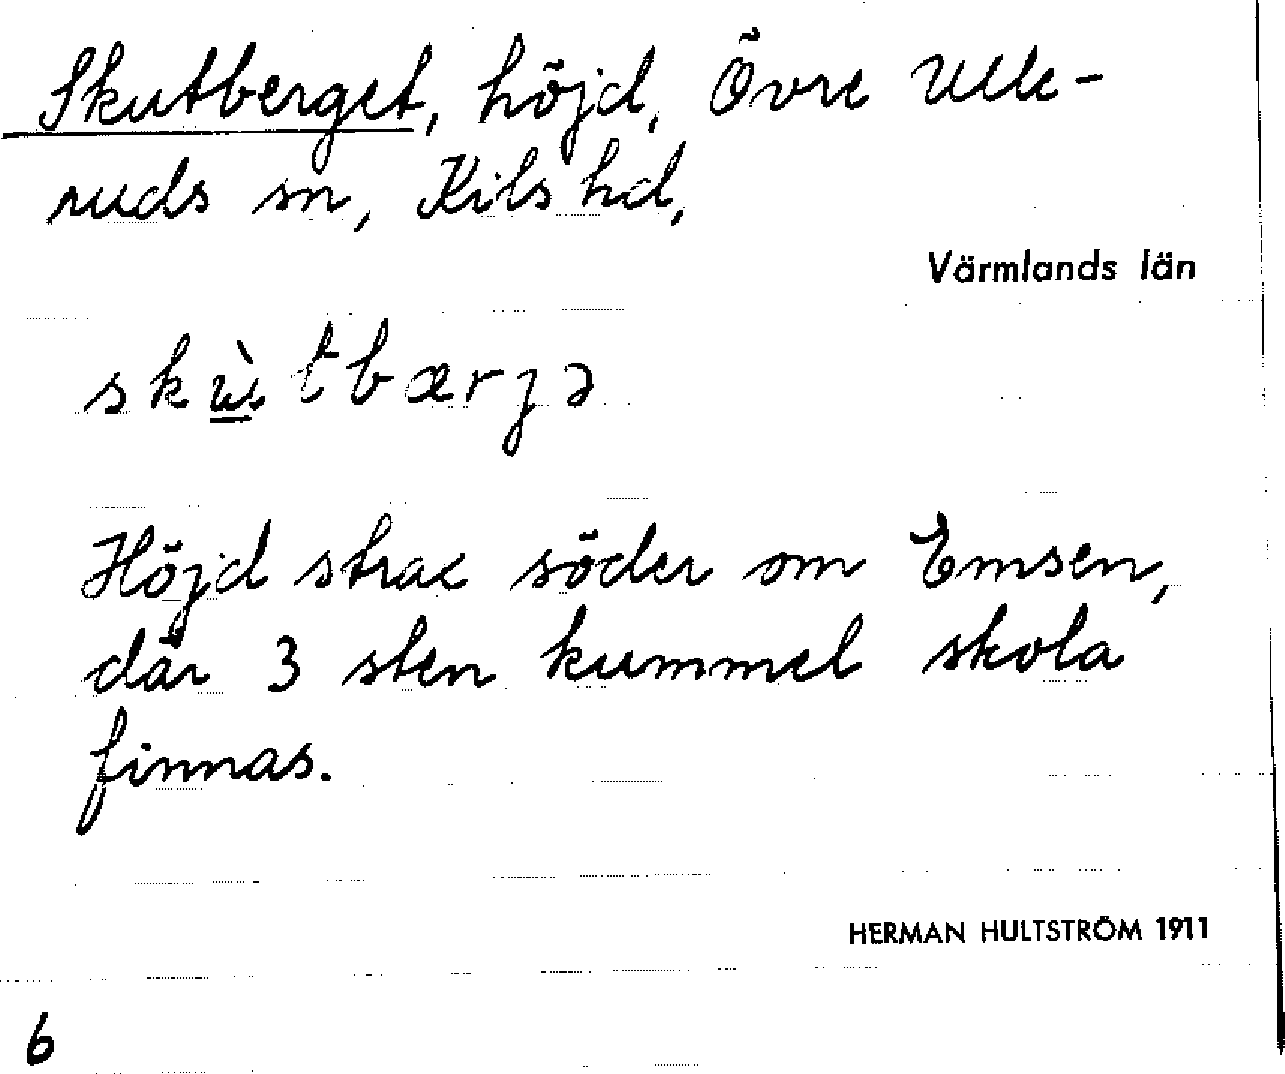 Skutberget, höjd, Övre Ulle-
ruds sn, Kils hd,
Värmlands län
skùtbærjə
Höjd strax söder om Emsen,
där 3 sten kummel skola
finnas.
HERMAN HULTSTRÖM 1911
6